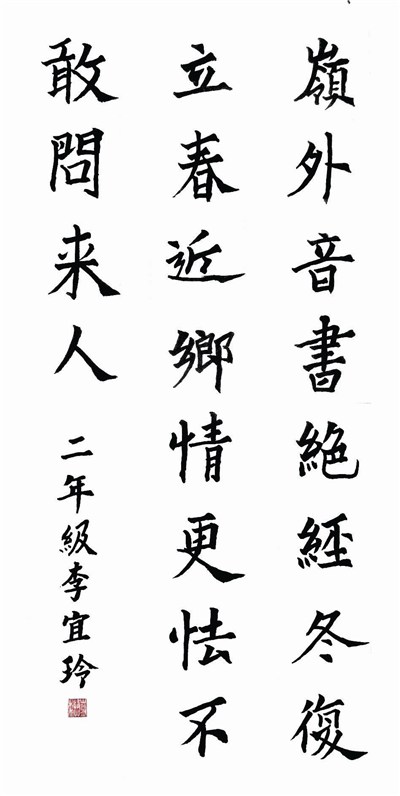 嶺外音書絶經冬復
立春近鄉情更怯不
敢問来人
二年級李宜玲